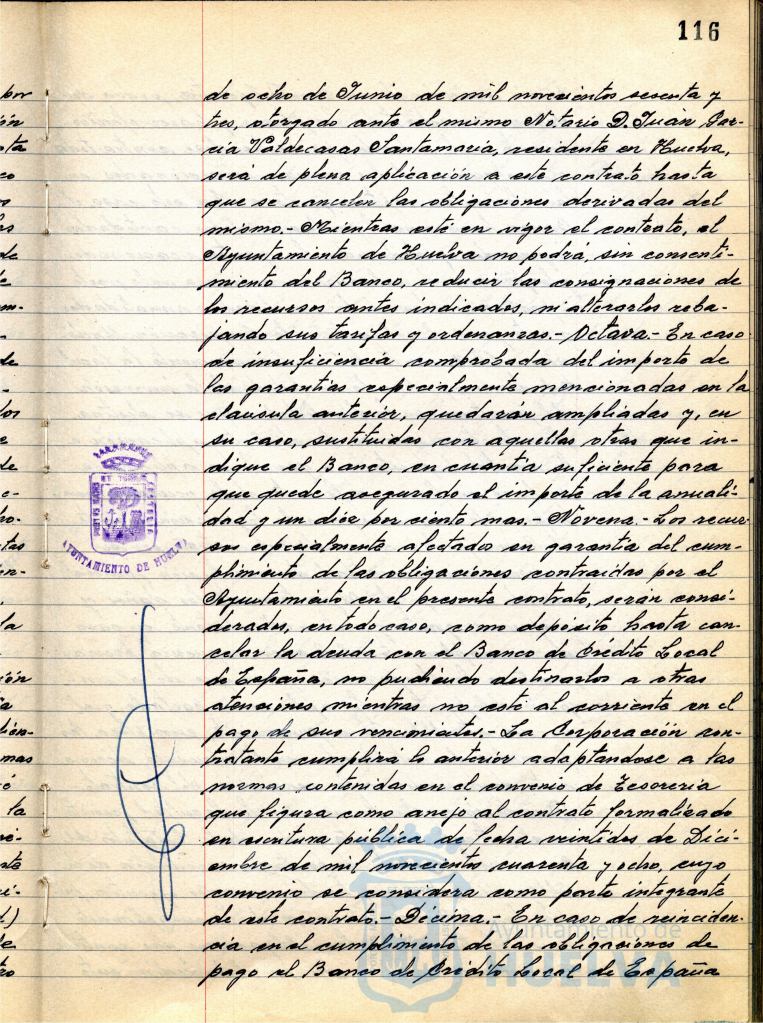 116
de ocho de Junio de mil novecientos sesenta y
tres, otorgado ante el mismo Notario D. Juan Gar-
cia Valdecasas Santamaria, residente en Huelva,
será de plena aplicación a este contrato hasta
que se cancelen las obligaciones derivadas del
mismo.- Mientras esté en vigor el contrato, el
Ayuntamiento de Huelva no podrá, sin consenti-
miento del Banco, reducir las consignaciones de
los recursos antes indicados, ni alterarlos reba-
jando sus tarifas y ordenanzas.- Octava.- En caso
de insuficiencia comprobada del importe de
las garantias especialmente mencionadas en la
clausula anterior, quedarán ampliadas y, en
su caso, sustituidas con aquellas otras que in-
dique el Banco, en cuantia suficiente para
que quede asegurado el importe de la anuali-
dad y un diez por ciento mas.- Novena.- Los recur-
sos especialmente afectados en garantia del cum-
plimiento de las obligaciones contraidas por el
Ayuntamiento en el presente contrato, serán consi-
derados, en todo caso, como depósito hasta can-
celar la deuda con el Banco de Crédito Local
de España, no pudiendo destinarlos a otras
atenciones mientras no esté al corriente en el
pago de sus vencimientos.- La Corporación con-
tratante cumplirá lo anterior adaptandose a las
normas contenidas en el convenio de Tesoreria
que figura como anejo al contrato formalizado
en escritura pública de fecha veintidos de Dici-
embre de mil novecientos cuarenta y ocho, cuyo
convenio se considera como parte integrante
de este contrato.- Décima.- En caso de reinciden-
cia en el cumplimiento de las obligaciones de
pago el Banco de Crédito Local de España
AYUNTAMIENTO DE HUELVA
Ayuntamiento de
HUELVA